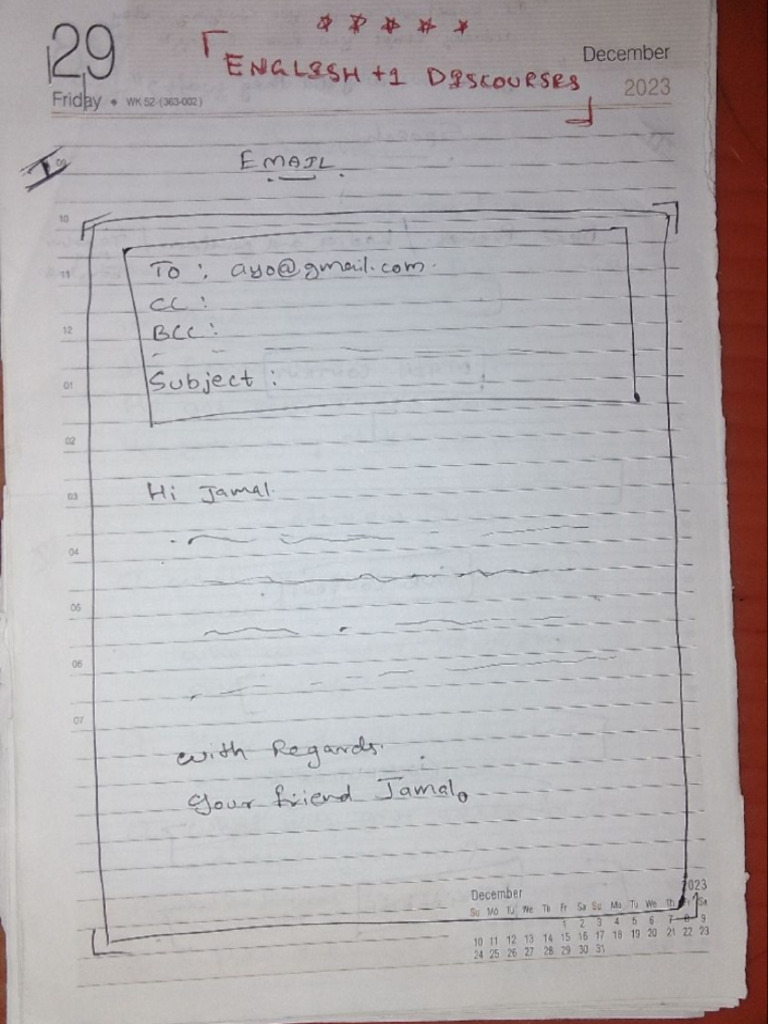 * * * * *
29
December
「ENGLISH +1 DISCOURSES」
Friday • WK 52 (363-002)
2023
I
09
EMAIL
10
To : ayo@gmail.com.
11
CC :
12
BCC :
01
Subject :
02
03
Hi Jamal.
04
05
06
07
with Regards.
Your friend Jamal.
December
2023
Su Mo Tu We Th Fr Sa Su Mo Tu We Th Fr Sa
1 2 3 4 5 6 7 8 9
10 11 12 13 14 15 16 17 18 19 20 21 22 23
24 25 26 27 28 29 30 31